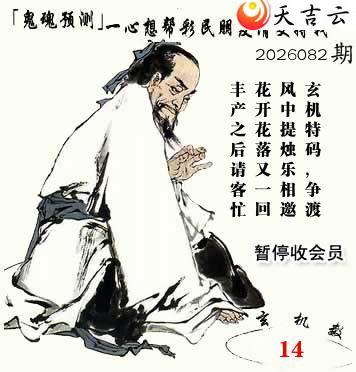 天吉云
「鬼魂预测」一心想帮彩民朋
2026082期
玄机特码，争渡
风中提烛乐相邀
花开花落又一回
丰产之后请客忙
暂停收会员
玄机数
14